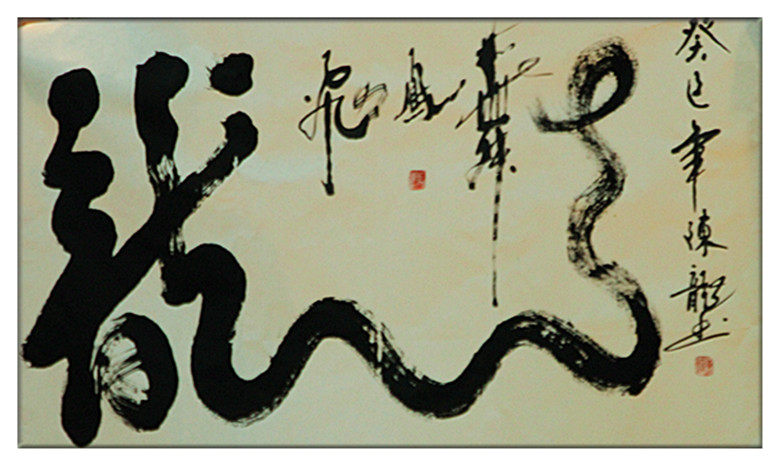 龍飛鳳舞
癸巳年陳龍书